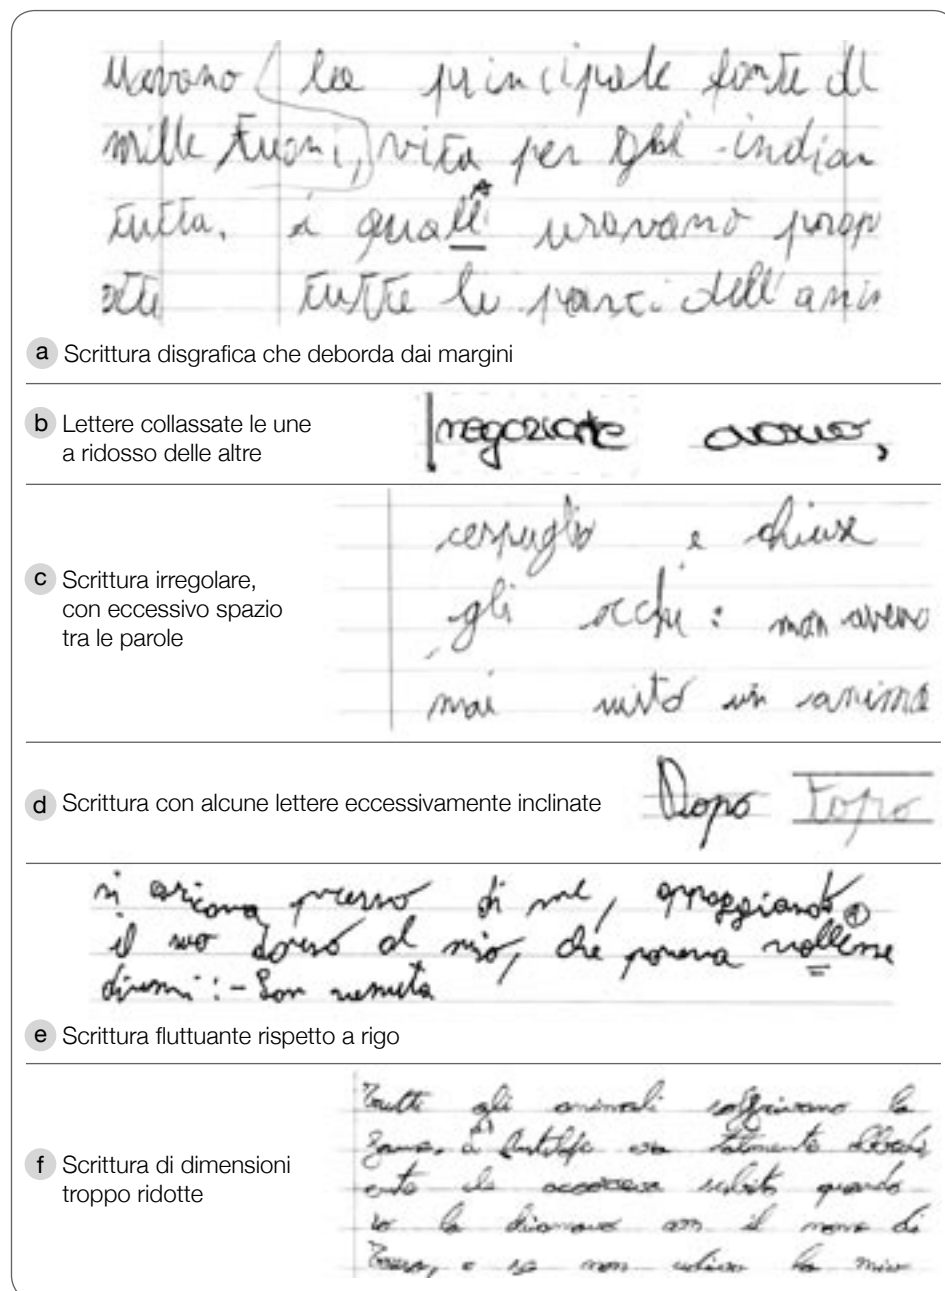 usavano la principale fonte di
mille tuoni, vita per gli indian
tutta. i quali usavano prop
tutte le parti dell'anim
a Scrittura disgrafica che deborda dai margini
b Lettere collassate le une
a ridosso delle altre
negoziante
c Scrittura irregolare,
con eccessivo spazio
tra le parole
cespuglio e chiuse
gli occhi: non avevo
mai visto un anima
d Scrittura con alcune lettere eccessivamente inclinate
Dopo topo
si presso di me, appoggiando
il suo dorso al mio, che pareva volesse
dirmi: - Son venuta
e Scrittura fluttuante rispetto a rigo
f Scrittura di dimensioni
troppo ridotte
Tutti gli animali soffrivano la
talmente
subito quando
io la chiamavo con il nome di
e se non udivo la mia